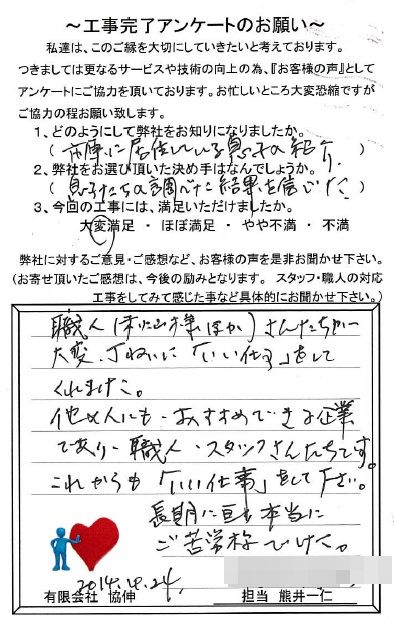 ～工事完了アンケートのお願い～
私達は、このご縁を大切にしていきたいと考えております。
つきましては更なるサービスや技術の向上の為、『お客様の声』として
アンケートにご協力を頂いております。お忙しいところ大変恐縮ですが
ご協力の程お願い致します。
1、どのようにして弊社をお知りになりましたか。
（ 兵庫に居住している息子の紹介. ）
2、弊社をお選び頂いた決め手はなんでしょうか。
（ 息子たちの調べた結果を信じた ）
3、今回の工事には、満足いただけましたか。
大変満足 ・ ほぼ満足 ・ やや不満 ・ 不満
弊社に対するご意見・ご感想など、お客様の声を是非お聞かせ下さい。
（お寄せ頂いたご感想は、今後の励みとなります。 スタッフ・職人の対応
工事をしてみて感じた事など具体的にお聞かせ下さい。）
職人（ ほか）さんたちが
大変、丁ねいに「いい仕事」をして
くれました。
他の人にも・おすすめできる企業
であり、職人・スタッフさんたちです。
これからも「いい仕事」をして下さい。
長期に亘り本当に
ご苦労様でした。
2014.4.24,
有限会社 協伸
担当 熊井一仁